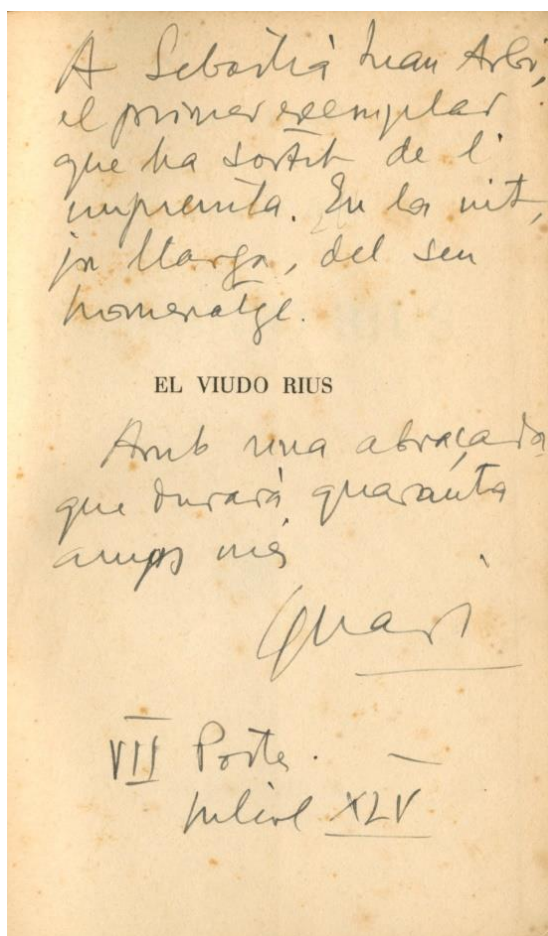 A Sebastià Juan Arbó,
el primer exemplar
que ha sortit de l'
impremta. En la nit,
ja llarga, del seu
homenatge.
EL VIUDO RIUS
Amb una abraçada
que durarà quaranta
anys més
VII Portes.
Juliol XLV